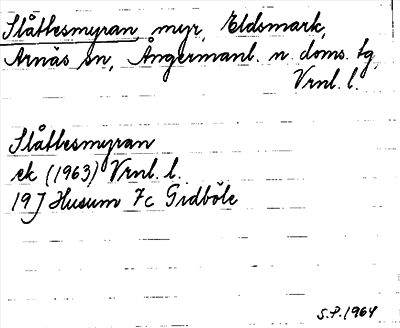 Slåttesmyran, myr, Eldsmark,
Arnäs sn, Ångermanl. n. doms. tg,
Vrnl. l.
Slåttesmyran
ek (1963) Vrnl. l.
19 J Husum 7c Gidböle
S.P. 1964